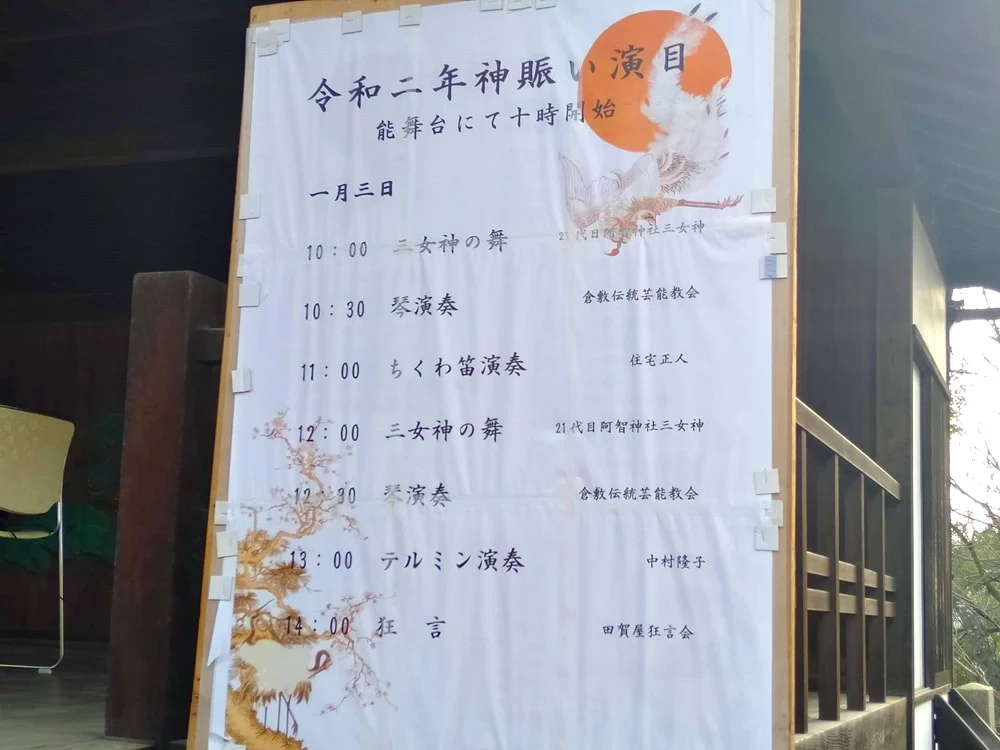 令和二年神賑い演目
能舞台にて十時開始
一月三日
10:00 三女神の舞 21代目阿智神社三女神
10:30 琴演奏 倉敷伝統芸能教会
11:00 ちくわ笛演奏 住宅正人
12:00 三女神の舞 21代目阿智神社三女神
12:30 琴演奏 倉敷伝統芸能教会
13:00 テルミン演奏 中村隆子
14:00 狂言 田賀屋狂言会